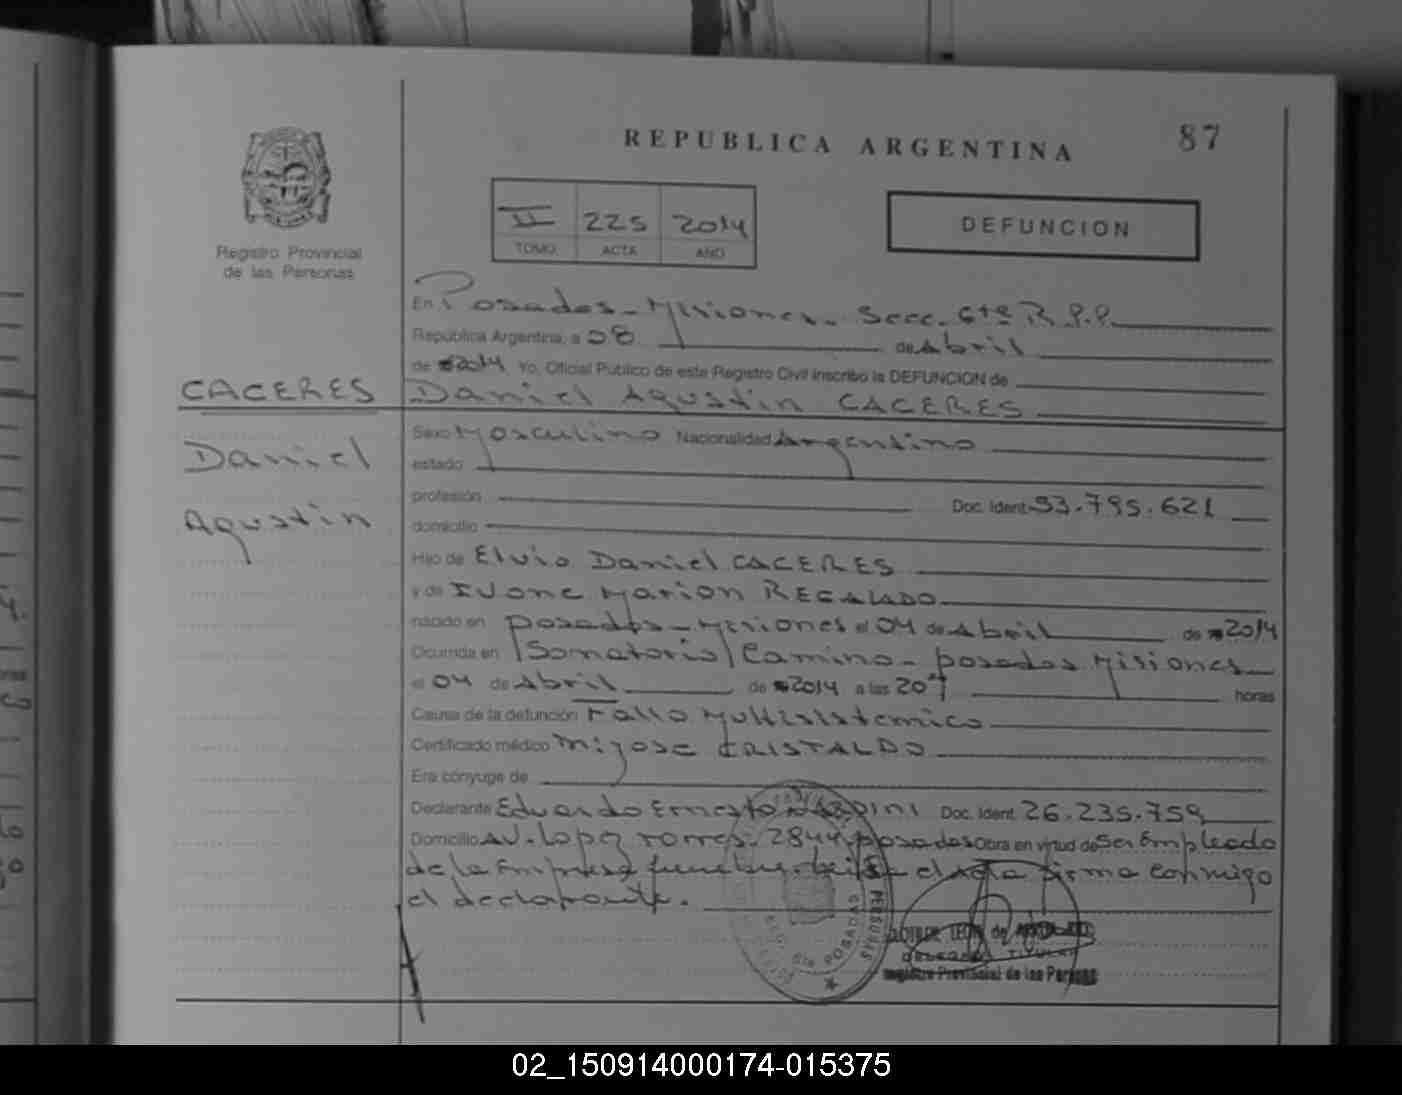 87
REPUBLICA ARGENTINA
II 225 2014
TOMO ACTA AÑO
DEFUNCION
Registro Provincial
de las Personas
En Posadas - Misiones. Secc. 6ta R.P.P.
República Argentina, a 08 de Abril
de 2014 Yo, Oficial Público de este Registro Civil inscribo la DEFUNCION de
CACERES
Daniel
Agustin
Daniel Agustin CACERES
Sexo Masculino Nacionalidad Argentino
estado
profesión Doc. Ident. 53.795.621
domicilio
Hijo de Elvio Daniel CACERES
y de Ivone Marion REGALADO
nacido en Posadas - Misiones el 04 de Abril de 2014
Ocurrida en Camino - Posadas Misiones
el 04 de Abril de 2014 a las 20 horas
Causa de la defunción Fallo Multisistemico
Certificado médico CRISTALDO
Era cónyuge de
Declarante Eduardo Ernesto Doc. Ident. 26.235.759
Domicilio AV. Lopez Torres 2844 Posadas Obra en virtud de Ser Empleado
de la Empresa el Acta firma conmigo
el declarante.
POSADAS
PERSONAS
TITULAR
Registro Provincial de las Personas
02_150914000174-015375